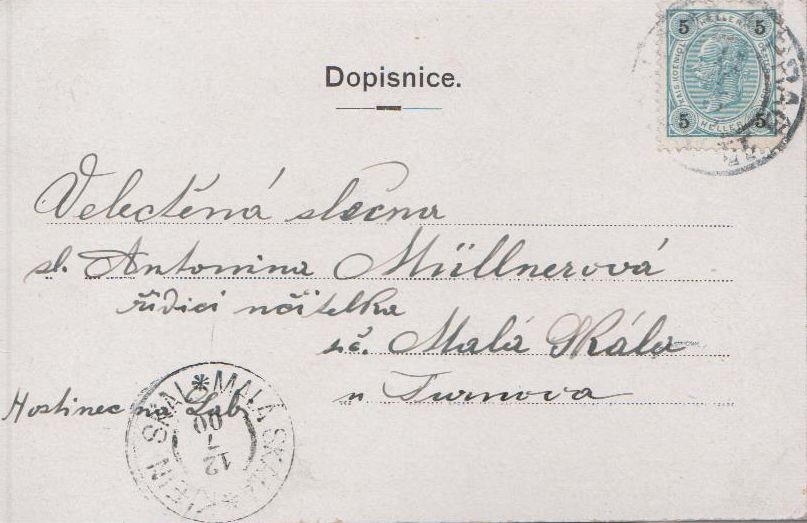 Dopisnice.
5 HELLER 5
5 HELLER 5
Velectěná slečna
sl. Antonina Müllnerová
řídící učitelka
Malá Skála
u Turnova
Hostinec na Lab
KLEIN SKAL * MALÁ SKÁLA *
12
7
00